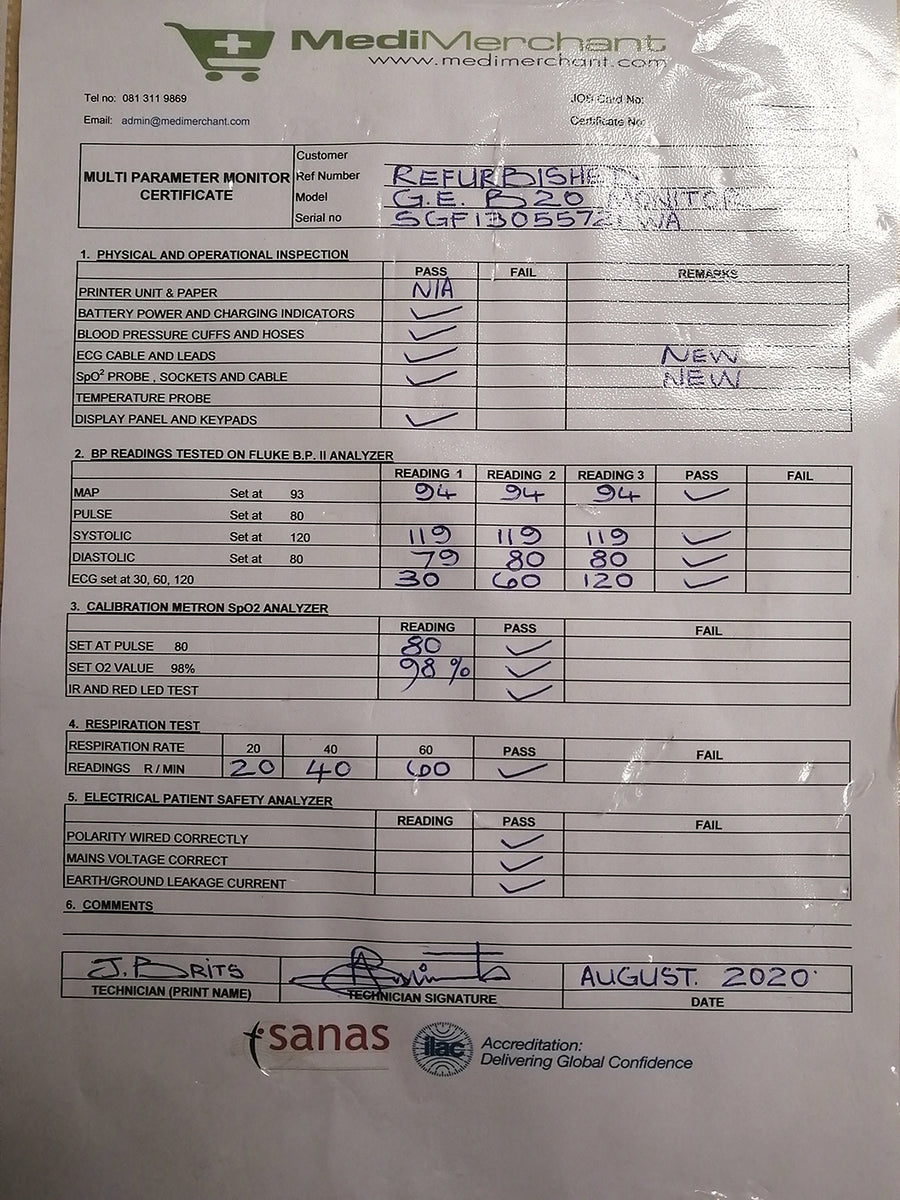 MediMerchant
www.medimerchant.com
Tel no: 081 311 9869
JOB Card No:
Email: admin@medimerchant.com
Certificate No:
MULTI PARAMETER MONITOR CERTIFICATE
Customer
Ref Number REFURBISHED
Model G.E. B20 MONITOR
Serial no SGF13055721 WA
1. PHYSICAL AND OPERATIONAL INSPECTION
PASS FAIL REMARKS
PRINTER UNIT & PAPER N/A
BATTERY POWER AND CHARGING INDICATORS ✓
BLOOD PRESSURE CUFFS AND HOSES ✓
ECG CABLE AND LEADS ✓ NEW
SpO² PROBE , SOCKETS AND CABLE ✓ NEW
TEMPERATURE PROBE
DISPLAY PANEL AND KEYPADS ✓
2. BP READINGS TESTED ON FLUKE B.P. II ANALYZER
READING 1 READING 2 READING 3 PASS FAIL
MAP Set at 93 94 94 94 ✓
PULSE Set at 80
SYSTOLIC Set at 120 119 119 119 ✓
DIASTOLIC Set at 80 79 80 80 ✓
ECG set at 30, 60, 120 30 60 120 ✓
3. CALIBRATION METRON SpO2 ANALYZER
READING PASS FAIL
SET AT PULSE 80 80 ✓
SET O2 VALUE 98% 98 % ✓
IR AND RED LED TEST ✓
4. RESPIRATION TEST
RESPIRATION RATE 20 40 60 PASS FAIL
READINGS R / MIN 20 40 60 ✓
5. ELECTRICAL PATIENT SAFETY ANALYZER
READING PASS FAIL
POLARITY WIRED CORRECTLY ✓
MAINS VOLTAGE CORRECT ✓
EARTH/GROUND LEAKAGE CURRENT ✓
6. COMMENTS
J. BRITS AUGUST. 2020
TECHNICIAN (PRINT NAME) TECHNICIAN SIGNATURE DATE
sanas ilac Accreditation:
Delivering Global Confidence